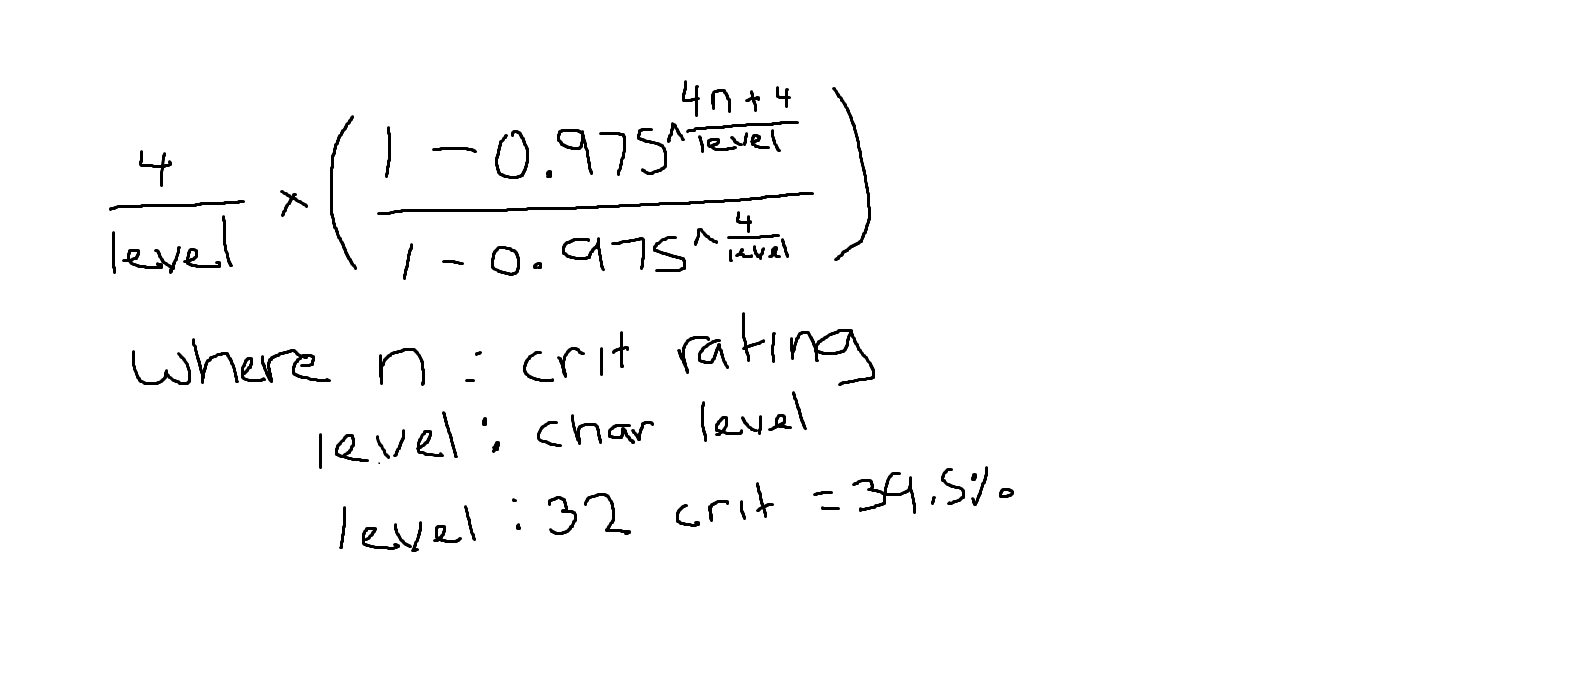 4/level × ( (1 - 0.975^(4n+4)/level) / (1 - 0.975^4/level) )
where n : crit rating
level : char level
level : 32 crit = 39.5%